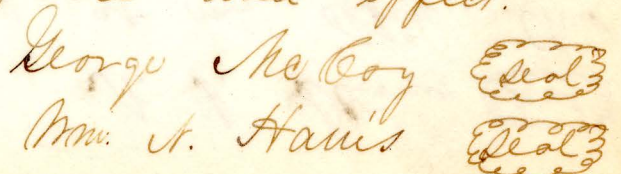 effect.
George McCoy Seal
Wm. N. Harris Seal